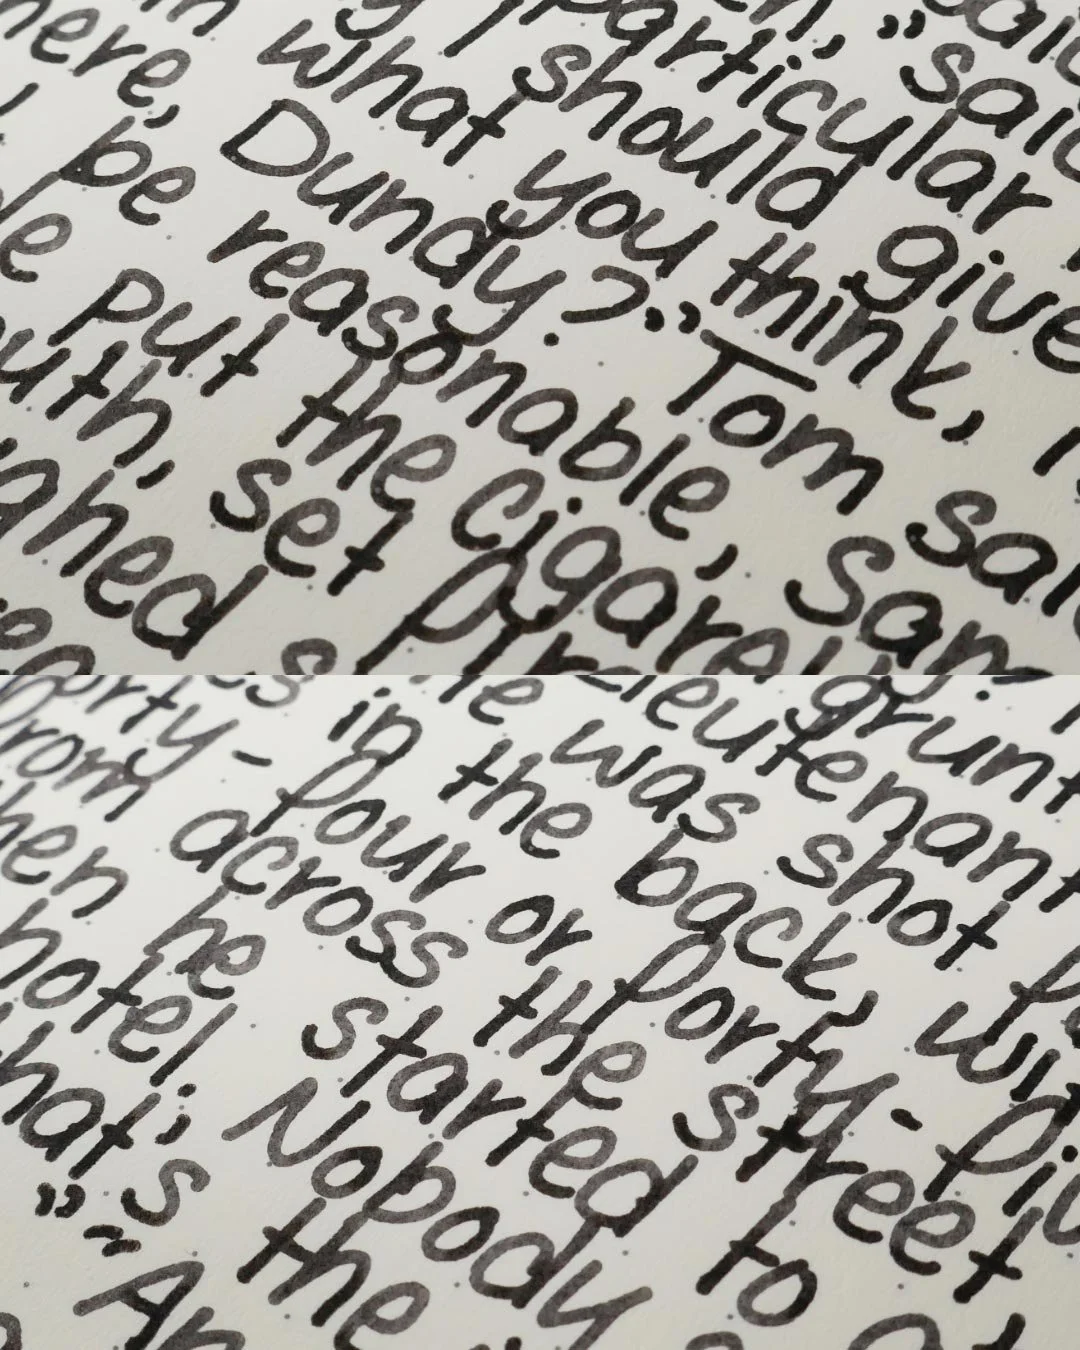 said
," said
particular
should give
what you think,
here, Dundy?" Tom said
be reasonable, Sam
put the cigare
uth, set
ghed
grunt
ieutenant
he was shot
in the back, wit
orty- four or forty- fi
from across the street
hen he started to
hotel; Nobody
hat's the
" "An